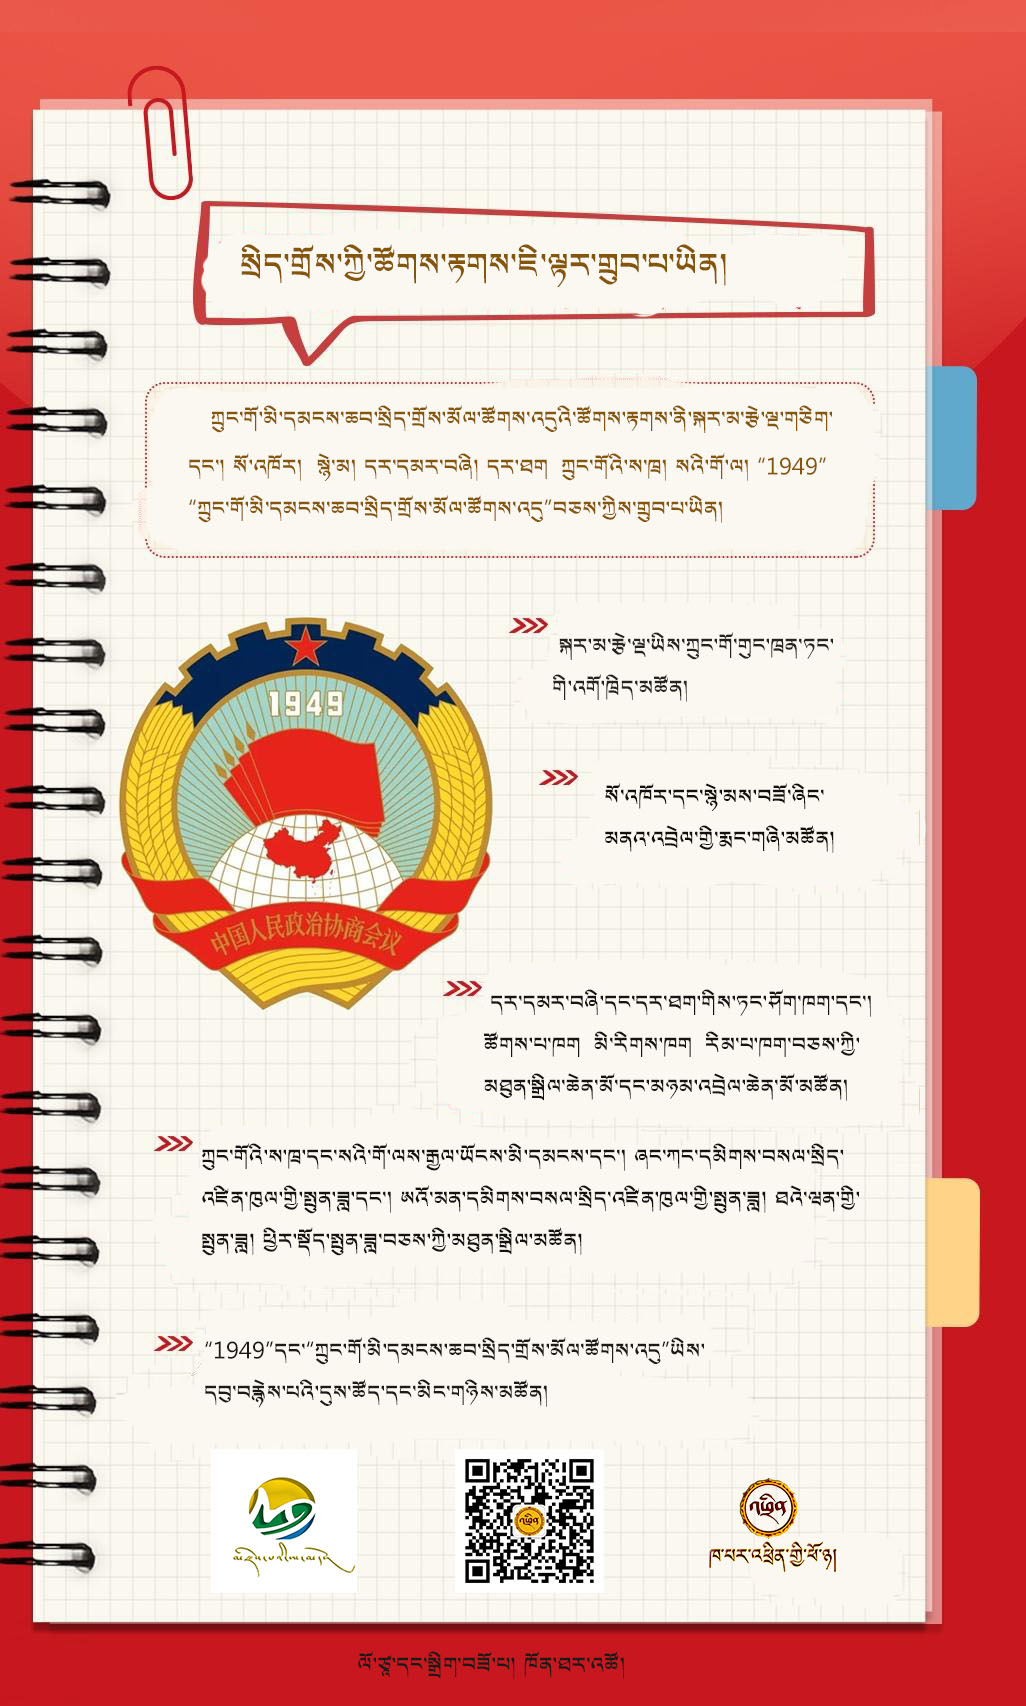 སྲིད་གྲོས་ཀྱི་ཚོགས་རྟགས་ཇི་ལྟར་གྲུབ་པ་ཡིན།
ཀྲུང་གོ་མི་དམངས་ཆབ་སྲིད་གྲོས་མོལ་ཚོགས་འདུའི་ཚོགས་རྟགས་ནི་སྐར་མ་རྩེ་ལྔ་གཅིག་
དང་། སོ་འཁོར། སྙེ་མ། དར་དམར་བཞི། དར་ཐག ཀྲུང་གོའི་ས་ཁྲ། སའི་གོ་ལ། “1949”
“ཀྲུང་གོ་མི་དམངས་ཆབ་སྲིད་གྲོས་མོལ་ཚོགས་འདུ”བཅས་ཀྱིས་གྲུབ་པ་ཡིན།
1949
中国人民政治协商会议
སྐར་མ་རྩེ་ལྔ་ཡིས་ཀྲུང་གོ་གུང་ཁྲན་ཏང་
གི་འགོ་ཁྲིད་མཚོན།
སོ་འཁོར་དང་སྙེ་མས་བཟོ་ཞིང་
མནའ་འབྲེལ་གྱི་རྨང་གཞི་མཚོན།
དར་དམར་བཞི་དང་དར་ཐག་གིས་ཏང་ཤོག་ཁག་དང་།
ཚོགས་པ་ཁག མི་རིགས་ཁག རིམ་པ་ཁག་བཅས་ཀྱི་
མཐུན་སྒྲིལ་ཆེན་མོ་དང་མཉམ་འབྲེལ་ཆེན་མོ་མཚོན།
ཀྲུང་གོའི་ས་ཁྲ་དང་སའི་གོ་ལས་རྒྱལ་ཡོངས་མི་དམངས་དང་། ཞང་ཀང་དམིགས་བསལ་སྲིད་
འཛིན་ཁུལ་གྱི་སྤུན་ཟླ་དང་། ཨའོ་མན་དམིགས་བསལ་སྲིད་འཛིན་ཁུལ་གྱི་སྤུན་ཟླ། ཐའེ་ཝན་གྱི་
སྤུན་ཟླ། ཕྱིར་སྡོད་སྤུན་ཟླ་བཅས་ཀྱི་མཐུན་སྒྲིལ་མཚོན།
“1949”དང་“ཀྲུང་གོ་མི་དམངས་ཆབ་སྲིད་གྲོས་མོལ་ཚོགས་འདུ”ཡིས་
དབུ་བརྙེས་པའི་དུས་ཚོད་དང་མིང་གཉིས་མཚོན།
འཕྲིན
ཁ་པར་འཕྲིན་གྱི་ཕོ་ཉ།
ལོ་ཙཱ་དང་སྒྲིག་བཟོ་པ། ཁོན་ཐར་འཚོ།